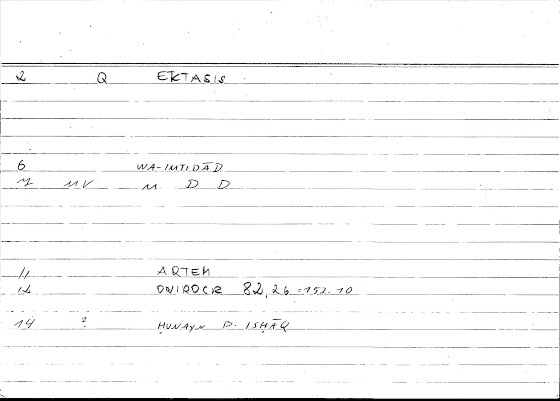 2 Q EKTASIS
6 WA-IMTIDĀD
7 MV M D D
11 ARTEM
12 ONIROCR 82,26 = 152.10
14 ? ḤUNAYN B. ISḤĀQ